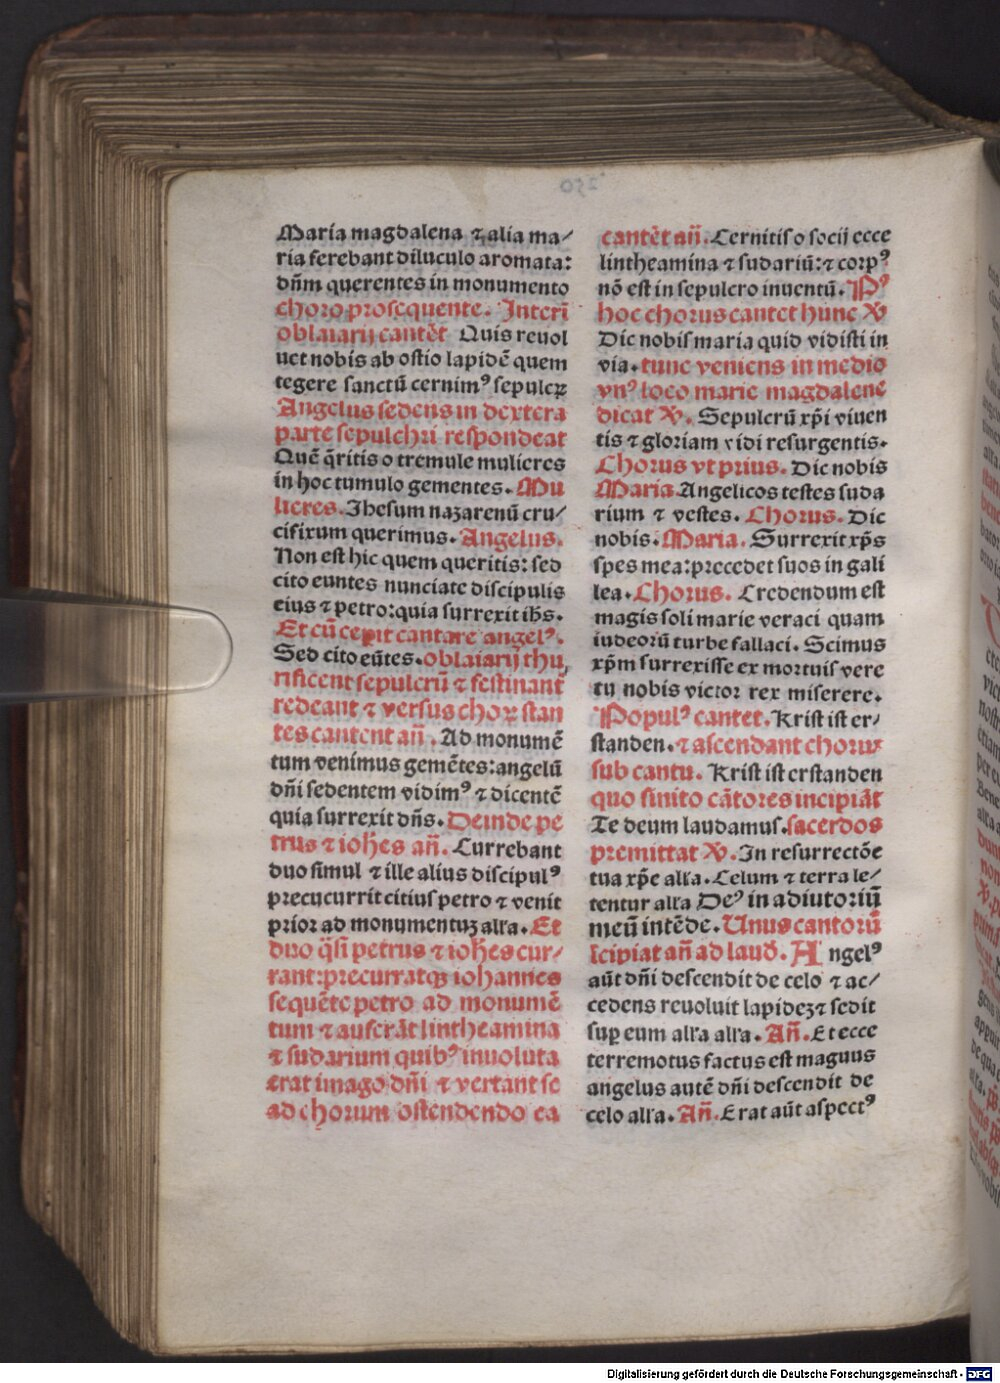 Maria magdalena ⁊ alia ma⸗
ria ferebant diluculo aromata:
dñm querentes in monumento
choro prosequente. Interī
oblaiarij cantēt Quis reuol
uet nobis ab ostio lapidē quem
tegere sanctū cernimꝰ sepulcꝝ
Angelus sedens in dextera
parte sepulchri respondeat
Quē q̄ritis o tremule mulieres
in hoc tumulo gementes. Mu
lieres. Jhesum nazarenū cru⸗
cifixum querimus. Angelus.
Non est hic quem queritis: sed
cito euntes nunciate discipulis
eius ⁊ petro: quia surrexit ihs̄.
Et cū cepit cantare angelꝰ.
Sed cito eūtes. oblaiarij thu
rificent sepulcrū ⁊ festinant̄
redeant ⁊ versus choꝝ stan
tes cantent añ. Ad monumē
tum venimus gemētes: angelū
dñi sedentem vidimꝰ ⁊ dicentē
quia surrexit dñs. Deinde pe
trus ⁊ iohēs añ. Currebant
duo simul ⁊ ille alius discipulꝰ
precucurrit citius petro ⁊ venit
prior ad monumentuꝫ alľa. Et
duo q̄si petrus ⁊ iohēs cur⸗
rant: precurratqꝫ iohannes
sequēte petro ad monumē
tum ⁊ auferāt lintheamina
⁊ sudarium quibꝰ inuoluta
erat imago dñi ⁊ vertant se
ad chorum ostendendo ea
cantēt añ. Cernitis o socij ecce
lintheamina ⁊ sudariū: ⁊ corpꝰ
nō est in sepulcro inuentū. Pꝰ
hoc chorus cantet hunc ℣
Dic nobis maria quid vidisti in
via. tunc veniens in medio
vnꝰ loco marie magdalene
dicat ℣. Sepulcrū xp̄i viuen
tis ⁊ gloriam vidi resurgentis.
Chorus vt prius. Dic nobis
Maria Angelicos testes suda
rium ⁊ vestes. Chorus. Dic
nobis. Maria. Surrexit xp̄s
spes mea: precedet suos in gali
lea. Chorus. Credendum est
magis soli marie veraci quam
iudeorū turbe fallaci. Scimus
xp̄m surrexisse ex mortuis vere
tu nobis victor rex miserere.
Populꝰ cantet. Krist ist er⸗
standen. ⁊ ascendant chorus
sub cantu. Krist ist erstanden
quo finito cātores incipiāt
Te deum laudamus. sacerdos
premittat ℣. In resurrectōe
tua xp̄e alľa. Celum ⁊ terra le⸗
tentur alľa Deꝰ in adiutoriū
meū intēde. Unus cantorū
īcipiat añ ad laud̄. Angelꝰ
aūt dñi descendit de celo ⁊ ac⸗
cedens reuoluit lapideꝫ ⁊ sedit
suꝑ eum alľa alľa. Añ. Et ecce
terremotus factus est magnus
angelus autē dñi descendit de
celo alľa. Añ. Erat aūt aspectꝰ
Digitalisierung gefördert durch die Deutsche Forschungsgemeinschaft - DFG